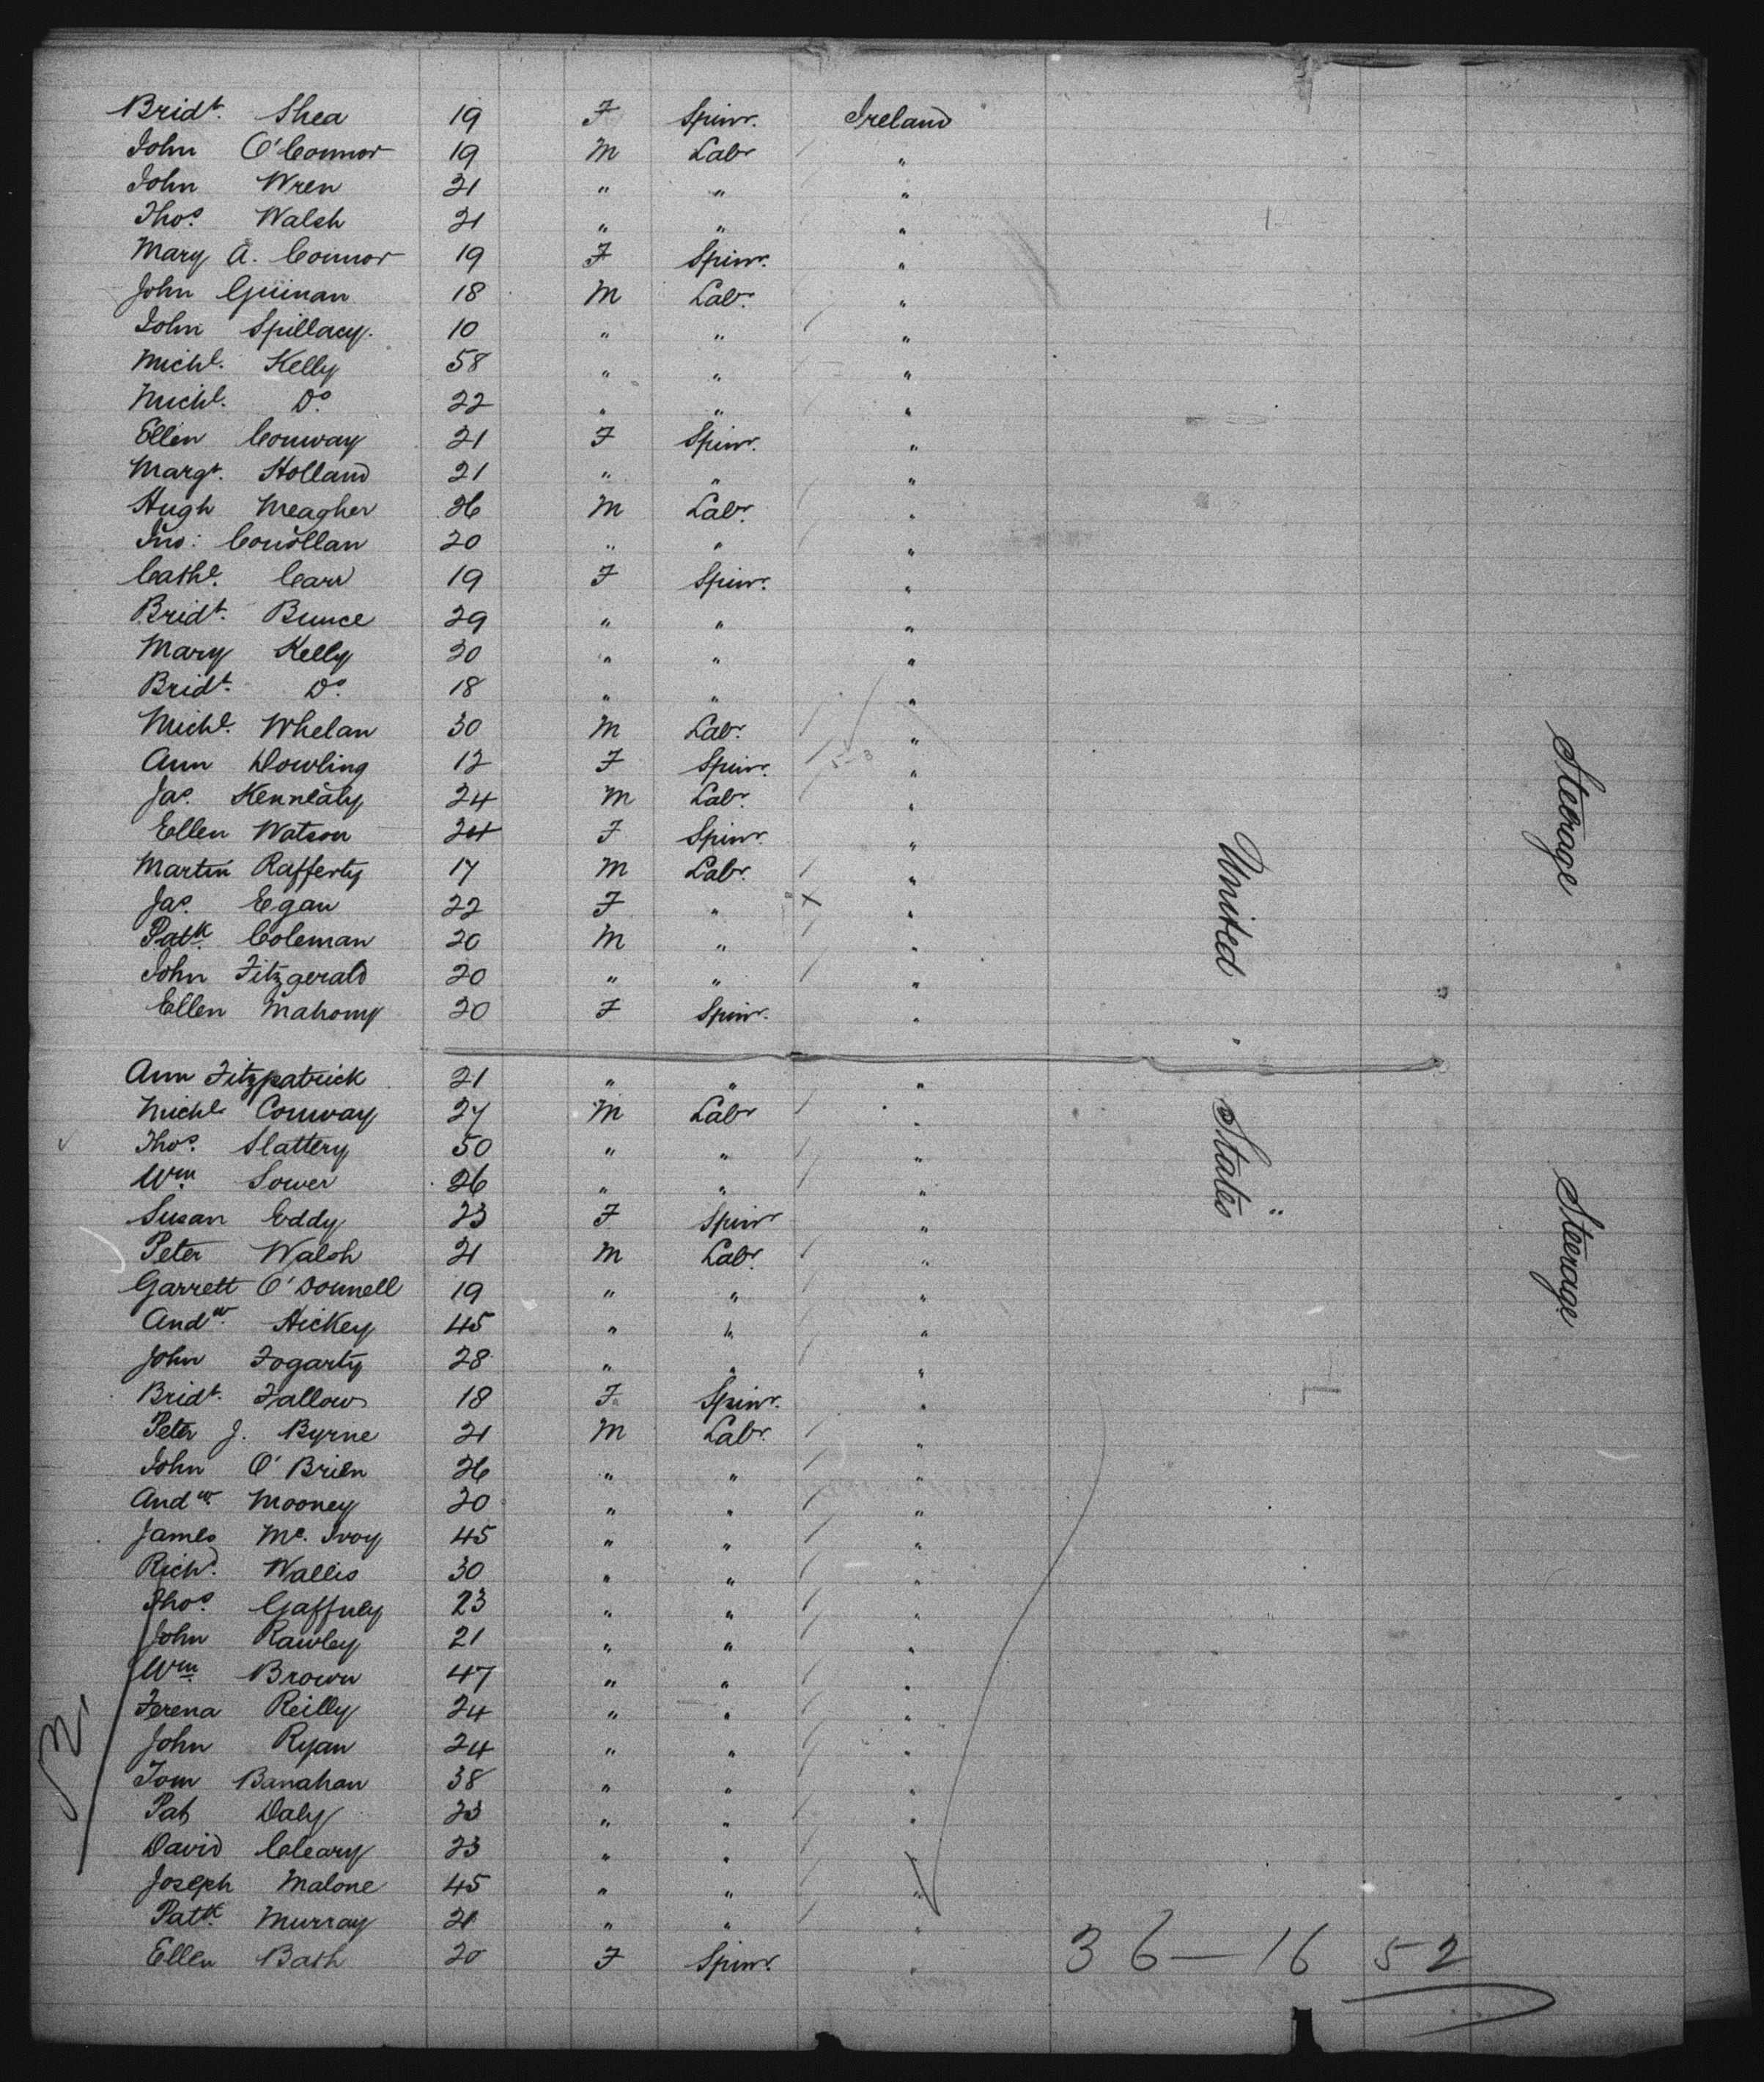 Bridt. Shea 19 F Spinr. Ireland
John O'Connor 19 M Labr "
John Wren 21 " " "
Thos. Walsh 21 " " "
Mary A. Connor 19 F Spinr. "
John Guinan 18 M Labr. "
John Spillacy. 10 " " "
Michl. Kelly 58 " " "
Michl. Do. 22 " " "
Ellen Conway 21 F Spinr. "
Margt. Holland 21 " " "
Hugh Meagher 26 M Labr. "
Jno: Conollan 20 " " "
Cathe. Carr 19 F Spinr. "
Bridt. Bunce 29 " " "
Mary Kelly 20 " " "
Bridt. Do. 18 " " "
Michl. Whelan 30 M Labr. "
Ann Dowling 12 F Spinr. "
Jas. Kennealy 24 M Labr. "
Ellen Watson 24 F Spinr. "
Martin Rafferty 17 M Labr. "
Jas. Egan 22 F " x "
Patk. Coleman 20 M " "
John Fitzgerald 20 " " "
Ellen Mahony 20 F Spinr. "
Ann Fitzpatrick 21 " " "
Michl. Conway 27 M Labr "
Thos. Slattery 50 " " "
Wm. Sower 26 " " "
Susan Eddy 23 F Spinr "
Peter Walsh 21 M Labr. "
Garrett O'Donnell 19 " " "
Andw. Hickey 45 " " "
John Fogarty 28 " " "
Bridt. Fallow 18 F Spinr. "
Peter J. Byrne 21 M Labr. "
John O'Brien 26 " " "
Andw. Mooney 20 " " "
James Mc. Ivoy 45 " " "
Richd. Wallis 30 " " "
Thos. Gaffney 23 " " "
John Rawley 21 " " "
Wm. Brown 47 " " "
Ferena Reilly 24 " " "
John Ryan 24 " " "
Tom Banahan 38 " " "
Pat Daly 23 " " "
David Cleary 23 " " "
Joseph Malone 45 " " "
Patk. Murray 21 " " "
Ellen Bath 20 F Spinr. "
36 — 16 52
United States "
Steerage
Steerage